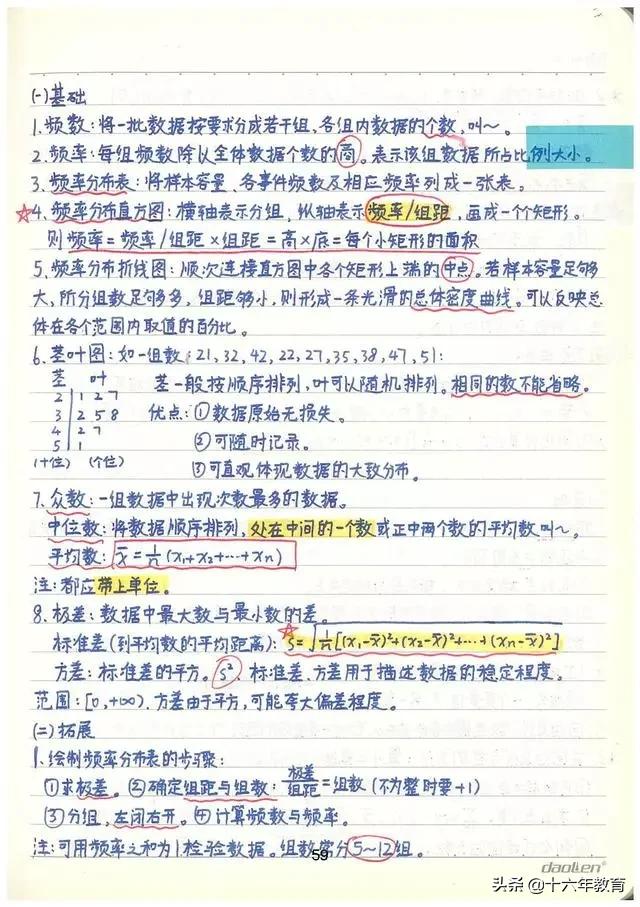 (一)基础
1.频数:将一批数据按要求分成若干组,各组内数据的个数,叫~。
2.频率:每组频数除以全体数据个数的商。表示该组数据所占比例大小。
3.频率分布表:将样本容量、各事件频数及相应频率列成一张表。
☆4.频率分布直方图:横轴表示分组,纵轴表示频率/组距,画成一个个矩形。
则频率=频率/组距×组距=高×底=每个小矩形的面积
5.频率分布折线图:顺次连接直方图中各个矩形上端的中点。若样本容量足够
大,所分组数足够多,组距够小,则形成一条光滑的总体密度曲线。可以反映总
体在各个范围内取值的百分比。
6.茎叶图:如一组数:21,32,42,22,27,35,38,47,51:
茎 叶 茎一般按顺序排列,叶可以随机排列。相同的数不能省略。
2 1 2 7
3 2 5 8 优点:①数据原始无损失。
4 2 7 ②可随时记录。
5 1
(十位) (个位) ③可直观体现数据的大致分布。
7.众数:一组数据中出现次数最多的数据。
中位数:将数据顺序排列,处在中间的一个数或正中两个数的平均数叫~。
平均数:x̄=1/n(x₁+x₂+…+xn)
注:都应带上单位。
8.极差:数据中最大数与最小数的差。
标准差(到平均数的平均距离):☆s=√1/n[(x₁-x̄)²+(x₂-x̄)²+…+(xn-x̄)²]
方差:标准差的平方。s². 标准差、方差用于描述数据的稳定程度。
范围:[0,+∞).方差由于平方,可能夸大偏差程度。
(二)拓展
1.绘制频率分布表的步骤:
①求极差。②确定组距与组数:极差/组距=组数(不为整时要+1)
③分组,左闭右开。④计算频数与频率。
注:可用频率之和为1检验数据。组数常分5~12组。
59
daolien®
头条 @十六年教育